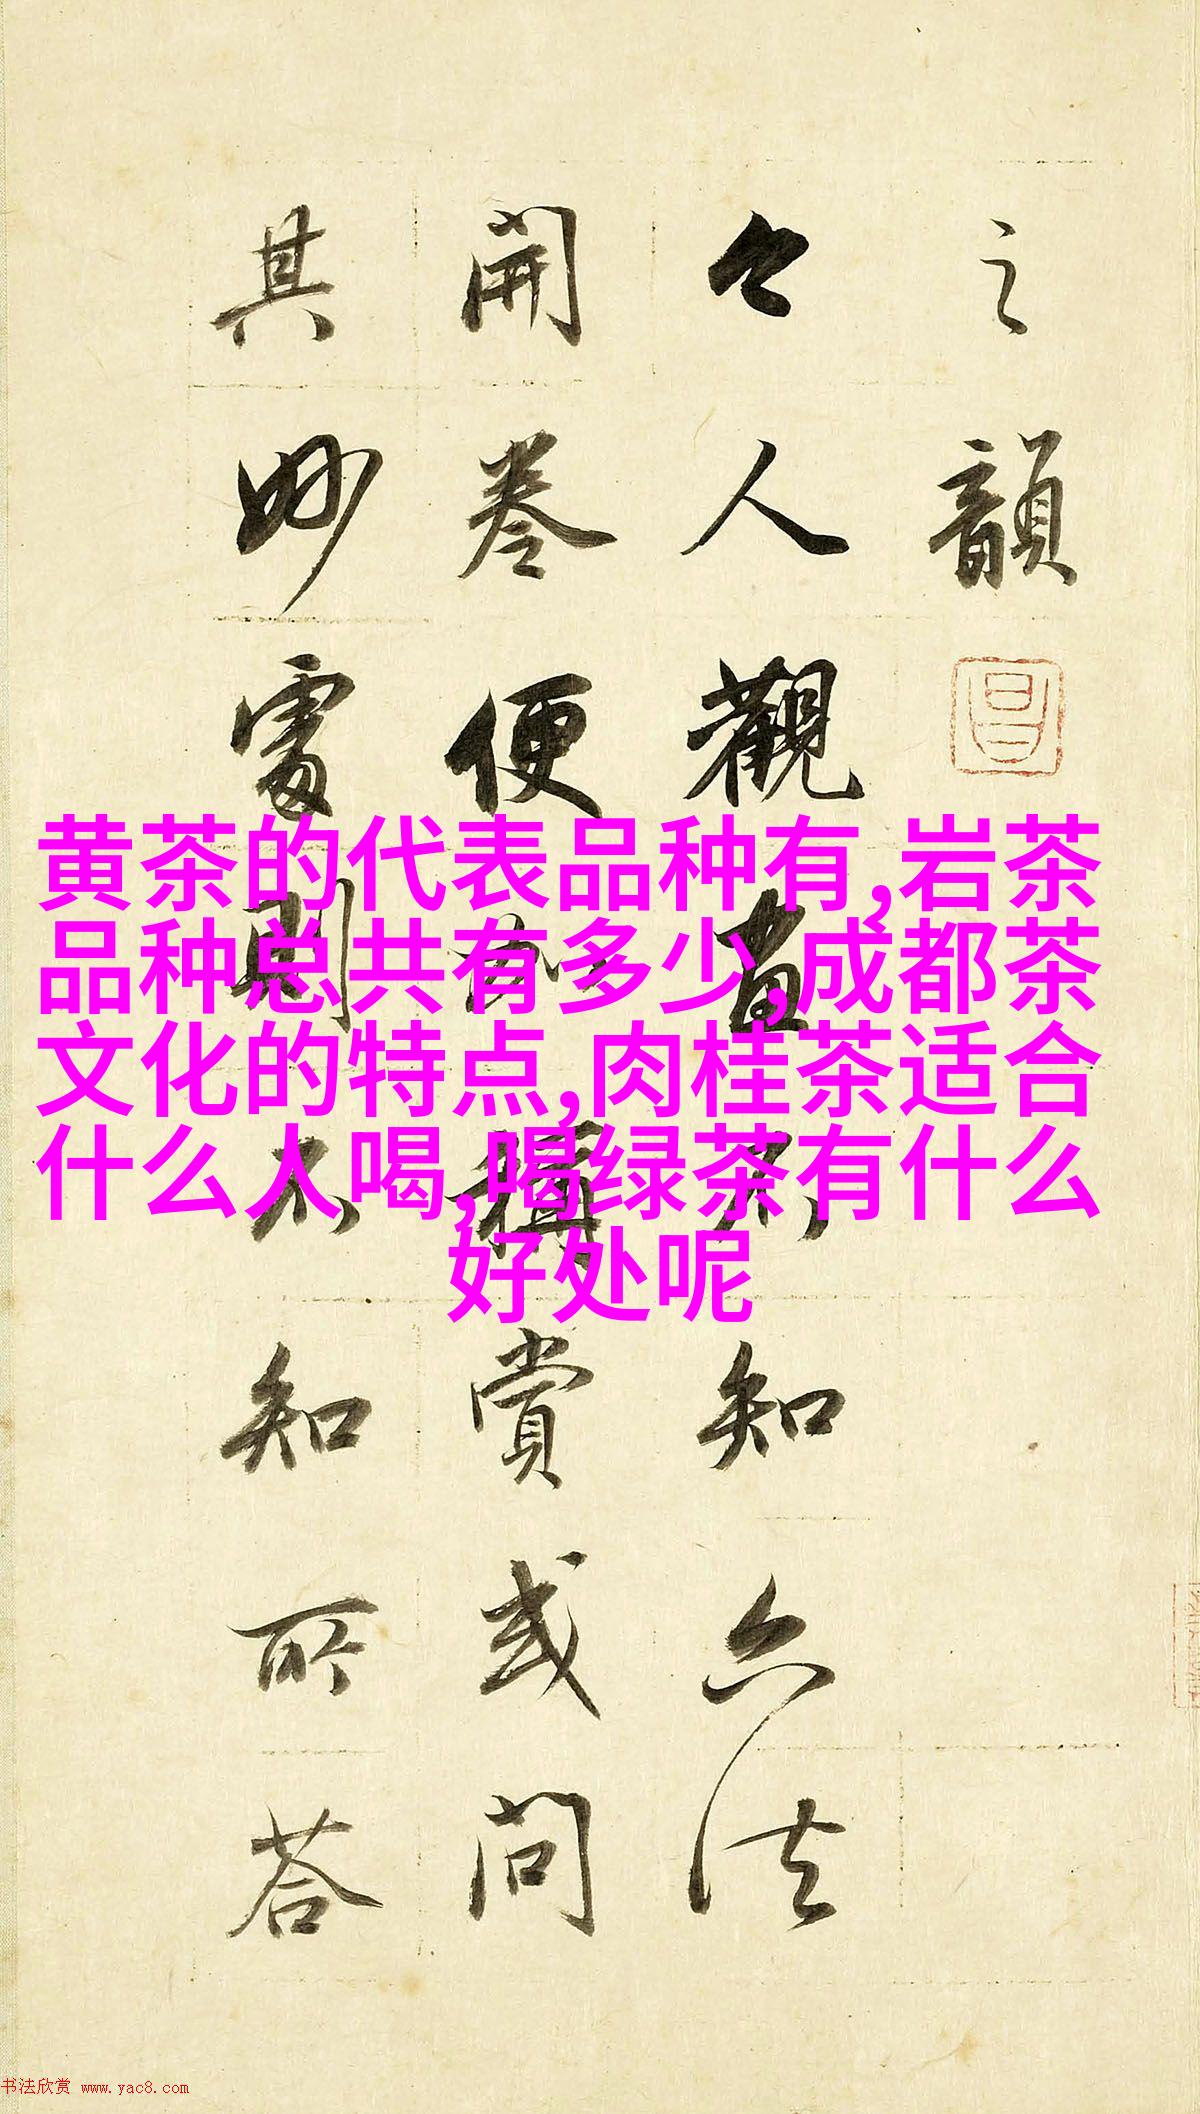 之韻
々人觀畫不知六法
開卷便加稱賞或問
其妙處則不知所荅
黄茶的代表品种有,岩茶
品种总共有多少,成都茶
文化的特点,肉桂茶适合
什么人喝,喝绿茶有什么
好处呢
书法欣赏 www.yac8.com